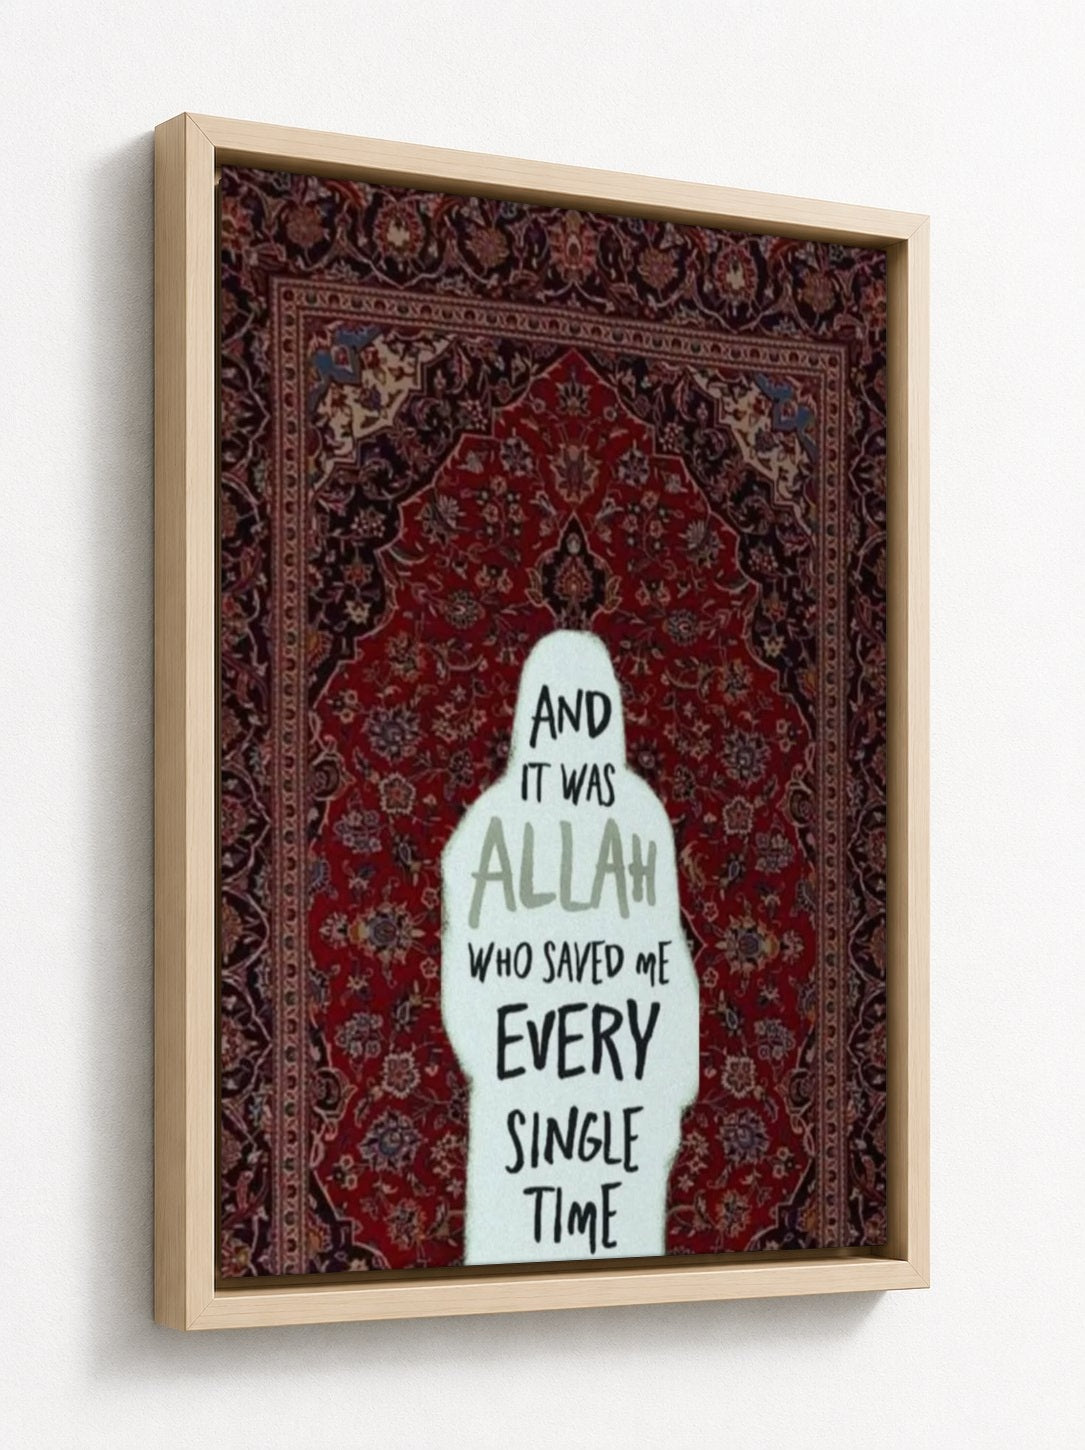 AND
IT WAS
ALLAH
WHO SAVED ME
EVERY
SINGLE
TIME